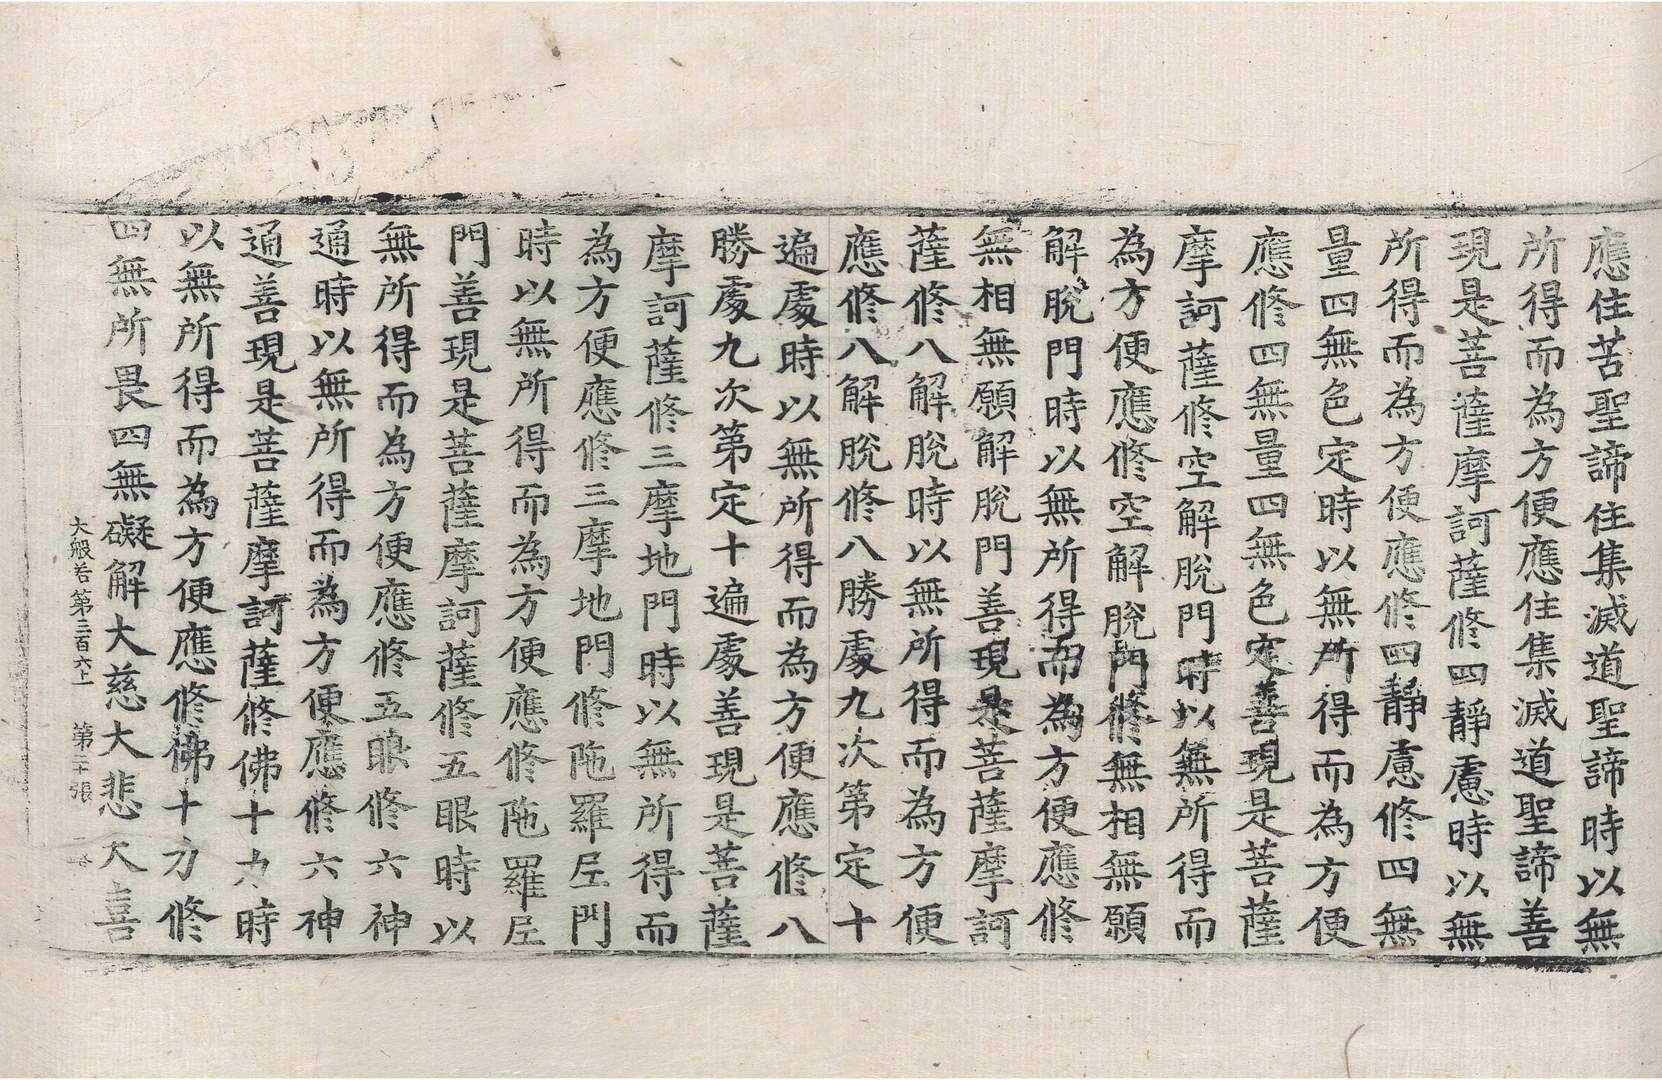 應住苦聖諦住集滅道聖諦時以無
所得而為方便應住集滅道聖諦善
現是菩薩摩訶薩修四靜慮時以無
所得而為方便應修四靜慮修四無
量四無色定時以無所得而為方便
應修四無量四無色定善現是菩薩
摩訶薩修空解脫門時以無所得而
為方便應修空解脫門修無相無願
解脫門時以無所得而為方便應修
無相無願解脫門善現是菩薩摩訶
薩修八解脫時以無所得而為方便
應修八解脫修八勝處九次第定十
遍處時以無所得而為方便應修八
勝處九次第定十遍處善現是菩薩
摩訶薩修三摩地門時以無所得而
為方便應修三摩地門修陁羅𡰱門
時以無所得而為方便應修陁羅𡰱
門善現是菩薩摩訶薩修五眼時以
無所得而為方便應修五眼修六神
通時以無所得而為方便應修六神
通善現是菩薩摩訶薩修佛十力時
以無所得而為方便應修佛十力修
四無所畏四無礙解大慈大悲大喜
大般若第三百六十 第二十張